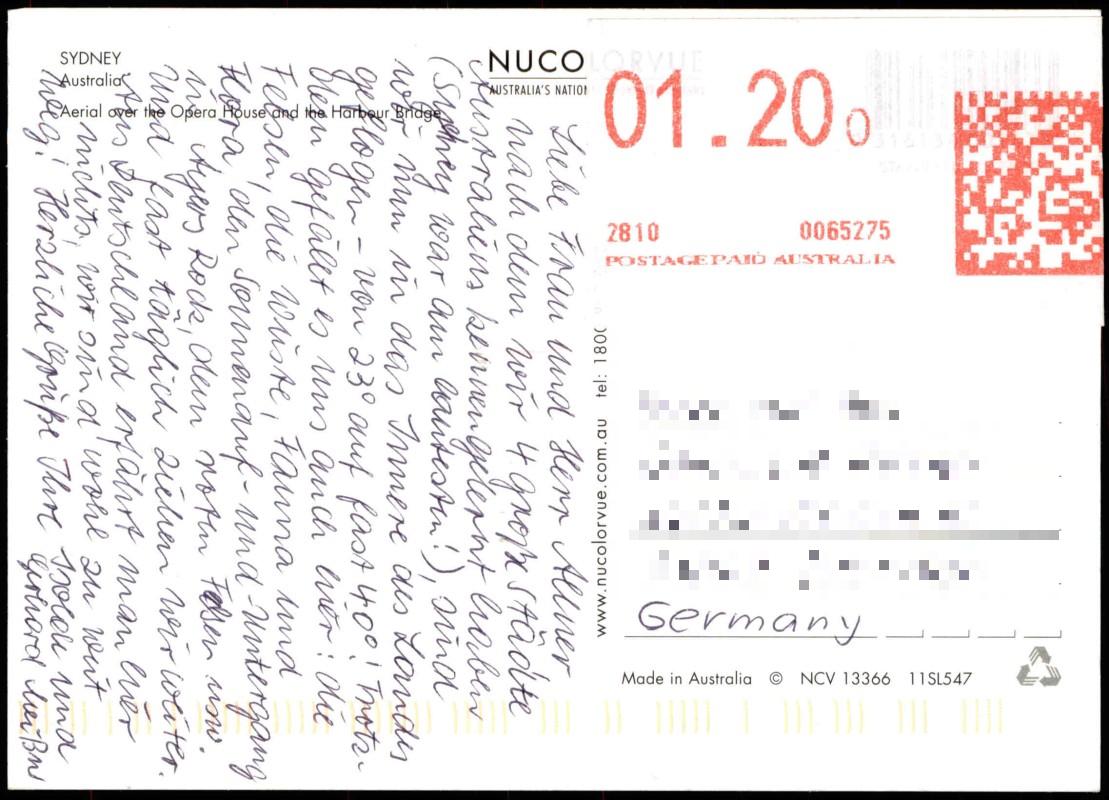 SYDNEY
Australia
Aerial over the Opera House and the Harbour Bridge
NUCO
LORVUE
AUSTRALIA'S NATION
01.200
2810 0065275
POSTAGE PAID AUSTRALIA
Liebe Frau und Herr Allner
nach dem wir 4 großstädte
Australiens kennengelernt haben
(Sydney war am
wir nun in das Innere des Landes
geflogen – von 23° auf fast 40°! Trotz-
dem gefällt es uns auch hier: die
Felsen, die Wüste, Fauna und
Flora, den Sonnenauf- und -untergang
in Ayers Rock, dem roten Felsen usw.
Und fast täglich ziehen wir weiter.
Aus Deutschland erfährt man hier
nichts, wir sind wohl zu weit
weg! Herzliche Grüße Ihre Isolde und
Gerhard
www.nucolorvue.com.au tel: 1800
Germany
Made in Australia © NCV 13366 11SL547